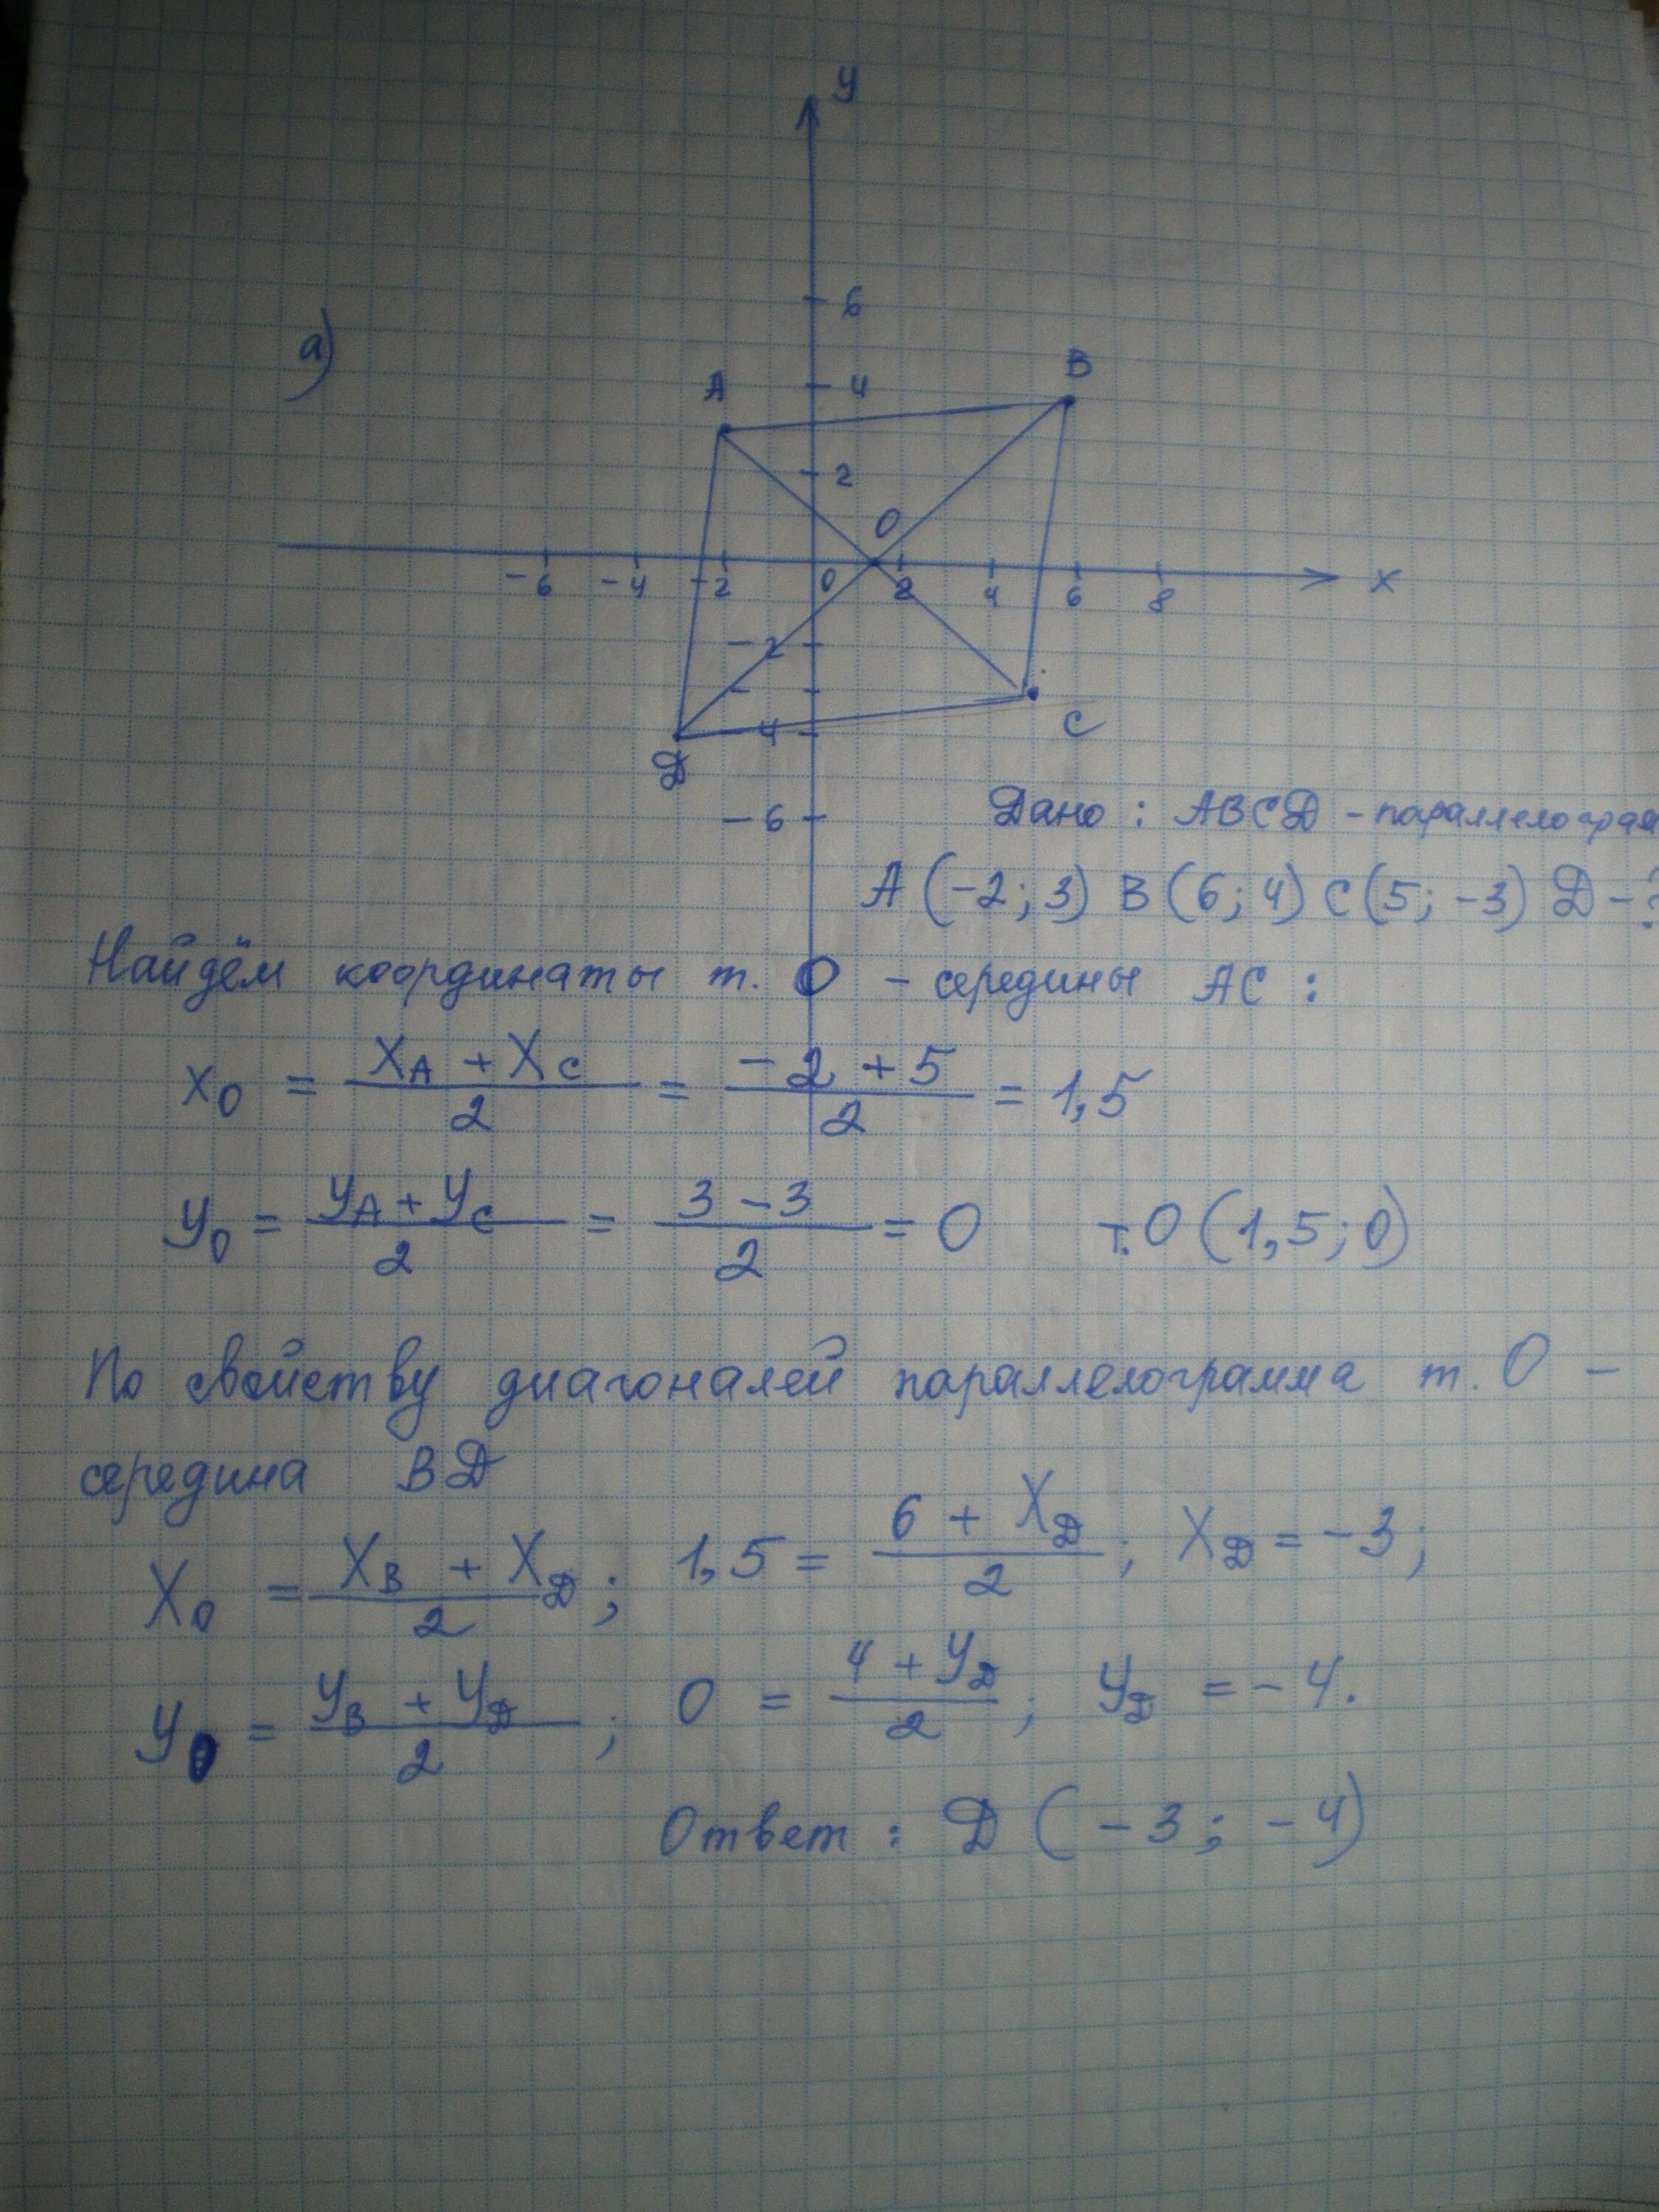 y
6
а)
A
B
4
2
O
-6 -4 -2 0 2 4 6 8 x
-2
C
-4
D
-6
Дано: ABCD - параллелограм
A(-2; 3) B(6; 4) C(5; -3) D-?
Найдём координаты т. O - середины AC:
x₀ = (x_A + x_C)/2 = (-2 + 5)/2 = 1,5
y₀ = (y_A + y_C)/2 = (3 - 3)/2 = 0 т.O(1,5; 0)
По свойству диагоналей параллелограмма т. O -
середина BD
x₀ = (x_B + x_D)/2; 1,5 = (6 + x_D)/2; x_D = -3;
y₀ = (y_B + y_D)/2; 0 = (4 + y_D)/2; y_D = -4.
Ответ: D(-3; -4)